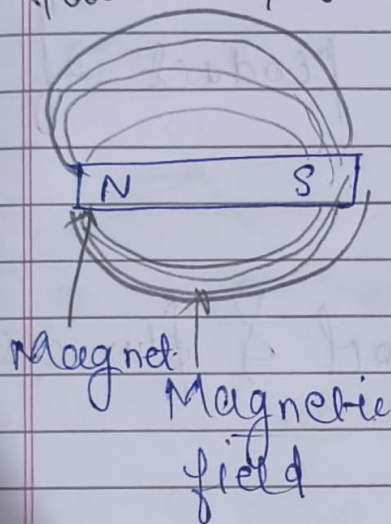 N S
Magnet
Magnetic
field